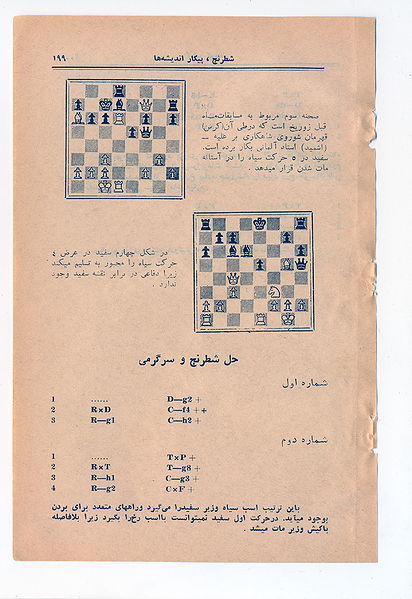 شطرنج ، پیکار اندیشه‌ها
۱۹۹
صحنه سوم مربوط به مسابقات ماه
قبل زوریخ است که درطی آن (کرس)
قهرمان شوروی شاهکاری بر علیه ــ
(اشمید) استاد آلمانی بکار برده است.
سفید در ۵ حرکت سیاه را در آستانه
مات شدن قرار میدهد .
در شکل چهارم سفید در عرض ٤
حرکت سیاه را مجبور به تسلیم میکند
زیرا دفاعی در برابر نقشه سفید وجود
ندارد
حل شطرنج و سرگرمی
شماره اول
1 ...... D—g2 +
2 R×D C—f4 + +
3 R—g1 C—h2 +
شماره دوم
1 ...... T×P +
2 R×T T—g8 +
3 R—h1 C—g3 +
4 R—g2 C×F +
باین ترتیب اسب سیاه وزیر سفیدرا می‌گیرد وراههای متعدد برای بردن
بوجود میآید. درحرکت اول سفید نمیتوانست بااسب رخ‌را بگیرد زیرا بلافاصله
باکیش وزیر مات میشد .